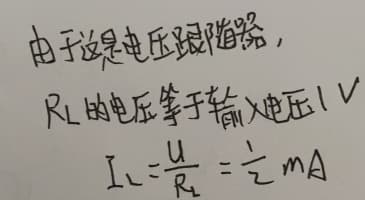 由于这是电压跟随器，
RL的电压等于输入电压1V
IL=U/RL=1/2 mA